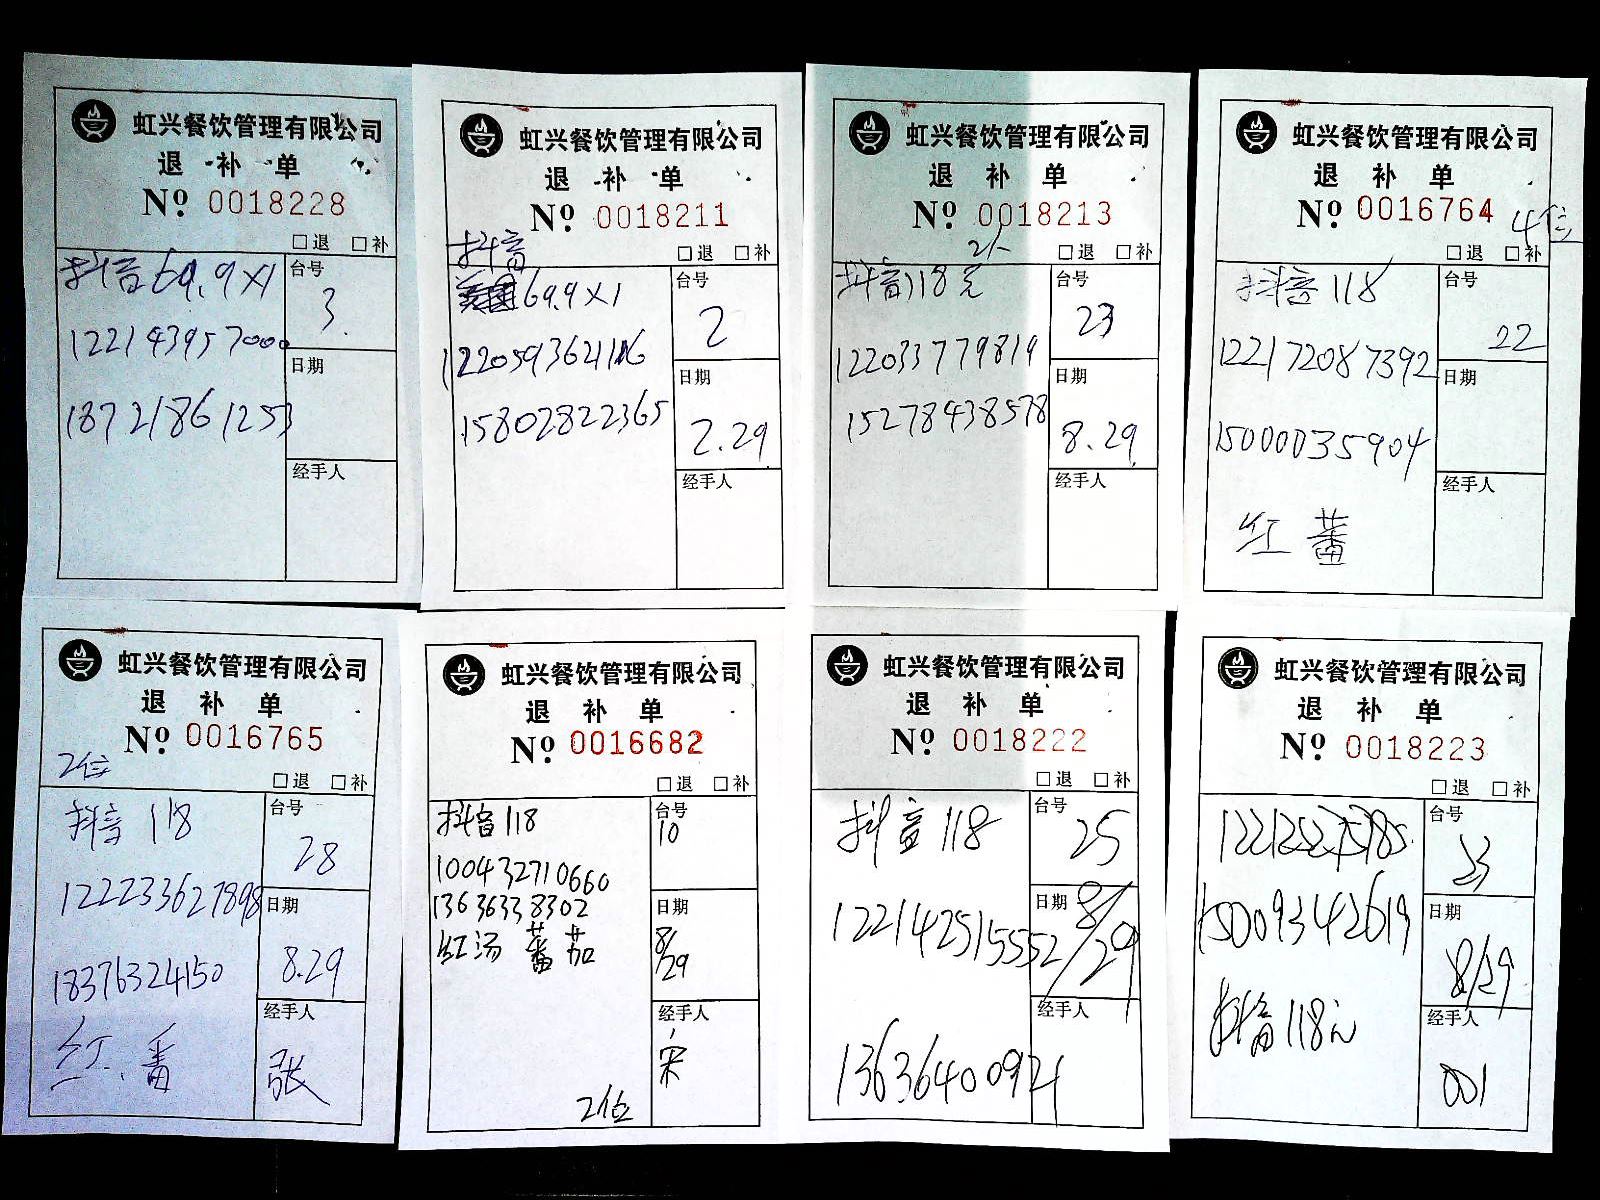 虹兴餐饮管理有限公司
退 补 单
Nº 0018228
□退 □补
抖音69.9×1
台号
3.
122143957000
日期
18721861253
经手人
虹兴餐饮管理有限公司
退 补 单
Nº 0018211
抖音
□退 □补
69.9×1
台号
2
日期
15802822365
2.29
经手人
虹兴餐饮管理有限公司
退 补 单
Nº 0018213
2人
□退 □补
抖音118元
台号
23
122033779819
日期
15278438578
8.29
经手人
虹兴餐饮管理有限公司
退 补 单
Nº 0016764
4位
□退 □补
抖音118
台号
22
122172087392
日期
15000035904
经手人
红 蕃
虹兴餐饮管理有限公司
退 补 单
Nº 0016765
2位
□退 □补
抖音 118
台号
28
122233627898
日期
18376324150
8.29
经手人
红.番
张
虹兴餐饮管理有限公司
退 补 单
Nº 0016682
□退 □补
抖音118
台号
10
100432710660
13636338302
日期
红汤 蕃茄
8/29
经手人
宋
2位
虹兴餐饮管理有限公司
退 补 单
Nº 0018222
□退 □补
抖音118
台号
25
122142515552
日期
8/29
经手人
13636400921
虹兴餐饮管理有限公司
退 补 单
Nº 0018223
□退 □补
台号
23
15009342619
日期
8/29
抖音118元
经手人
001